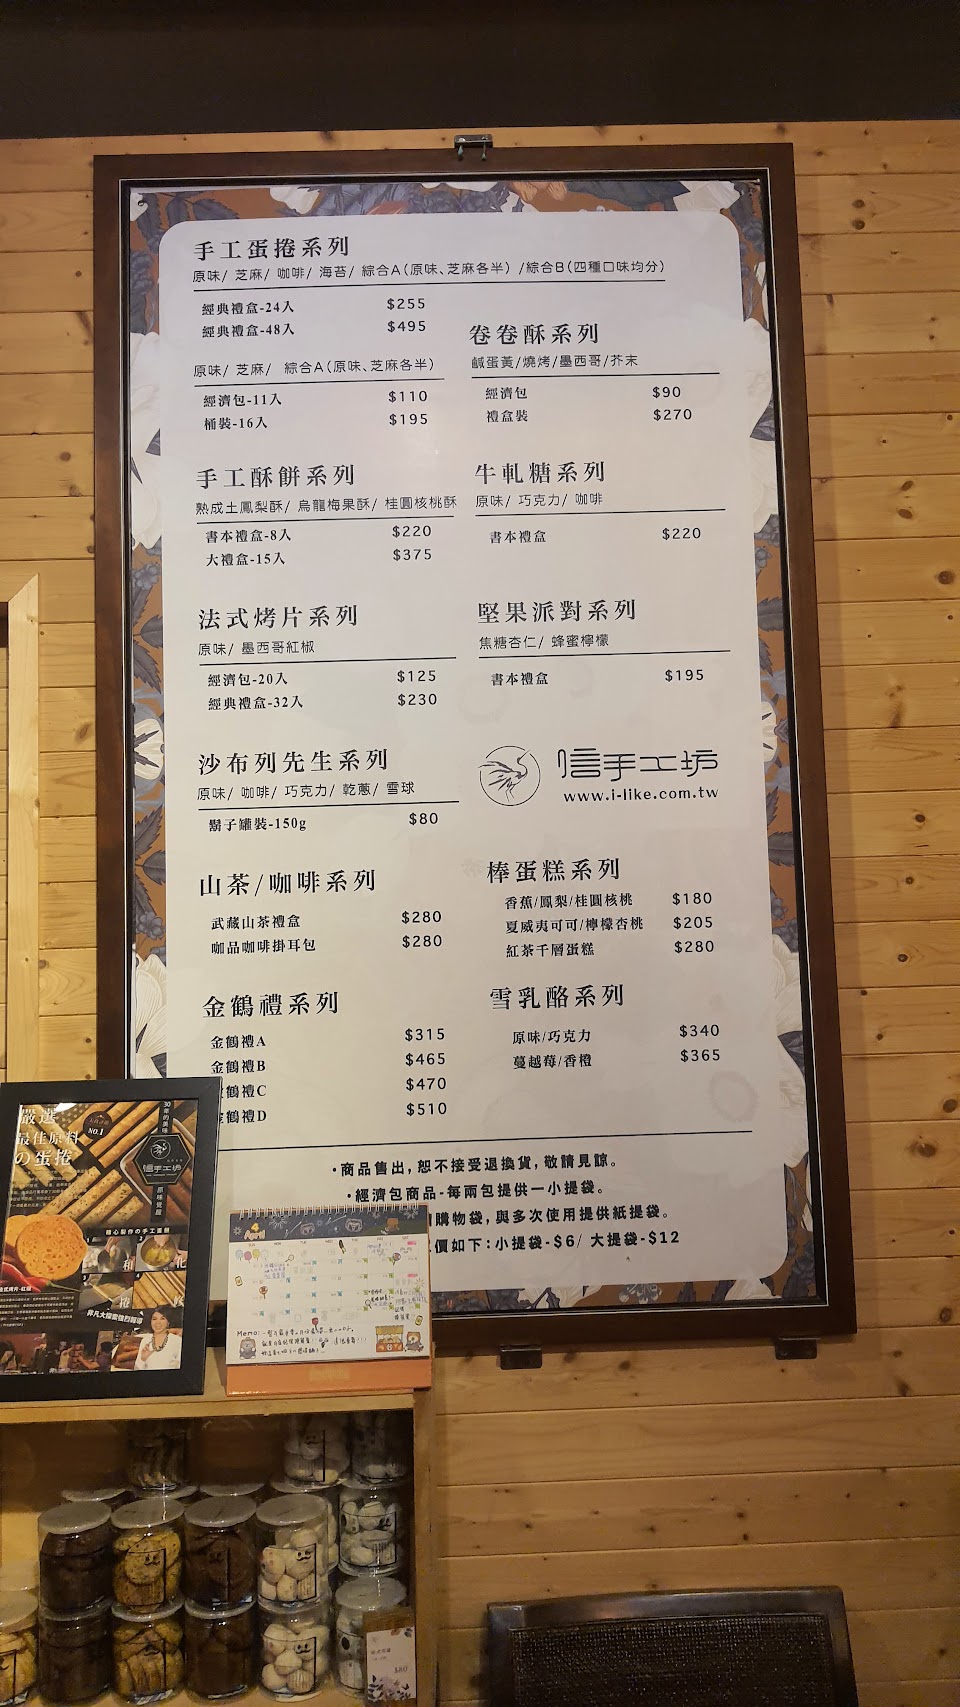 手工蛋捲系列
原味/ 芝麻/ 咖啡/ 海苔/ 綜合A(原味、芝麻各半) /綜合B(四種口味均分)
經典禮盒-24入 $255
經典禮盒-48入 $495
原味/ 芝麻/ 綜合A(原味、芝麻各半)
經濟包-11入 $110
桶裝-16入 $195
手工酥餅系列
熟成土鳳梨酥/ 烏龍梅果酥/ 桂圓核桃酥
書本禮盒-8入 $220
大禮盒-15入 $375
法式烤片系列
原味/ 墨西哥紅椒
經濟包-20入 $125
經典禮盒-32入 $230
沙布列先生系列
原味/ 咖啡/ 巧克力/ 乾蔥/ 雪球
鬍子罐裝-150g $80
山茶/咖啡系列
武藏山茶禮盒 $280
咖品咖啡掛耳包 $280
金鶴禮系列
金鶴禮A $315
金鶴禮B $465
鶴禮C $470
鶴禮D $510
卷卷酥系列
鹹蛋黃/燒烤/墨西哥/芥末
經濟包 $90
禮盒裝 $270
牛軋糖系列
原味/ 巧克力/ 咖啡
書本禮盒 $220
堅果派對系列
焦糖杏仁/ 蜂蜜檸檬
書本禮盒 $195
信手工坊
www.i-like.com.tw
棒蛋糕系列
香蕉/鳳梨/桂圓核桃 $180
夏威夷可可/檸檬杏桃 $205
紅茶千層蛋糕 $280
雪乳酪系列
原味/巧克力 $340
蔓越莓/香橙 $365
·商品售出，恕不接受退換貨，敬請見諒。
·經濟包商品-每兩包提供一小提袋。
購物袋，與多次使用提供紙提袋。
價如下：小提袋-$6/ 大提袋-$12
嚴選
最佳原料
の蛋捲
NO.1
30年的美味
信手工坊
原味覺醒
精心製作の手工蛋捲
和
捲
4
April
Memo:
$80